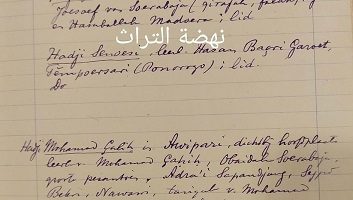 Joessoef van Soerabaja (
en Hasboellah Madoera: lid.
نهضة التراث
Hadji Senoesi, leerl. Hasan Basri Garoet,
Tempoersari (Ponorogo): lid.
Do
Hadji Mohamad Galih is Awipari, dichtbij hoofdplaats
leerl. v. Mohamad Garoet, Obaidah Soerabaja.
groote pesantren, Adra'i Sapandjang, Sajjid
Bekri, Nawawi, tariqat v. Mohamad